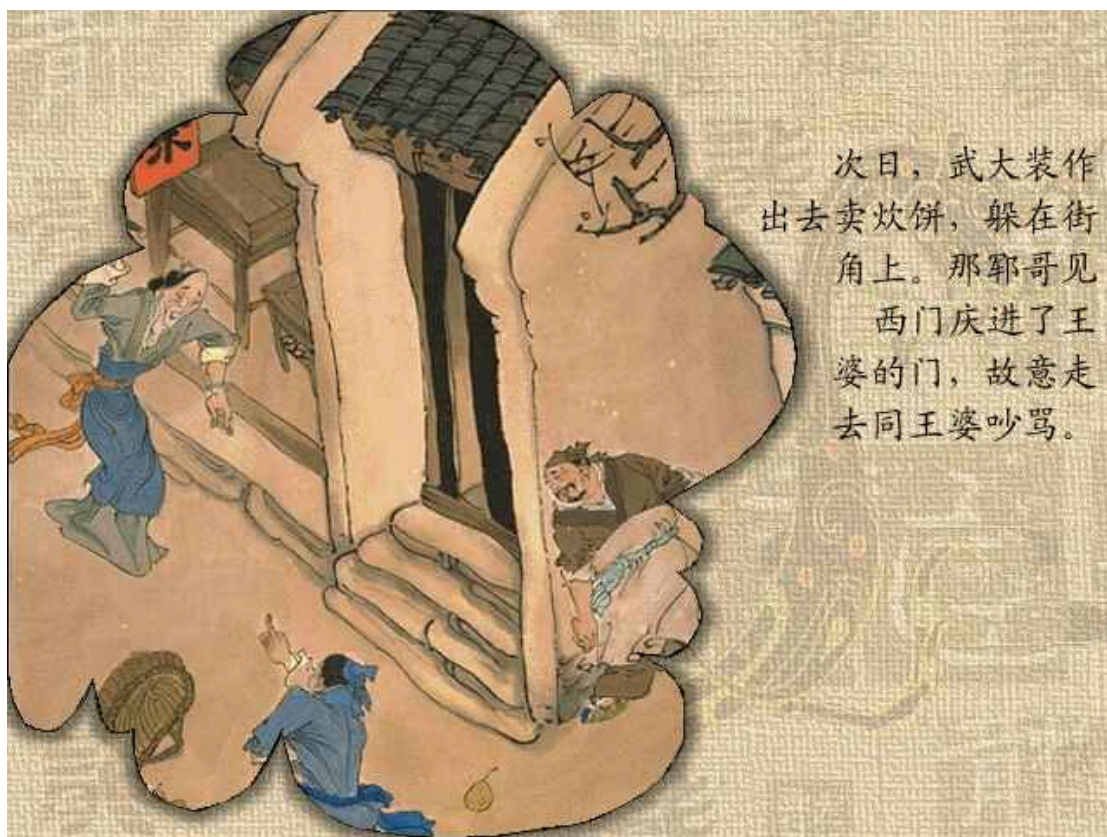 次日，武大装作
出去卖炊饼，躲在街
角上。那郓哥见
西门庆进了王
婆的门，故意走
去同王婆吵骂。